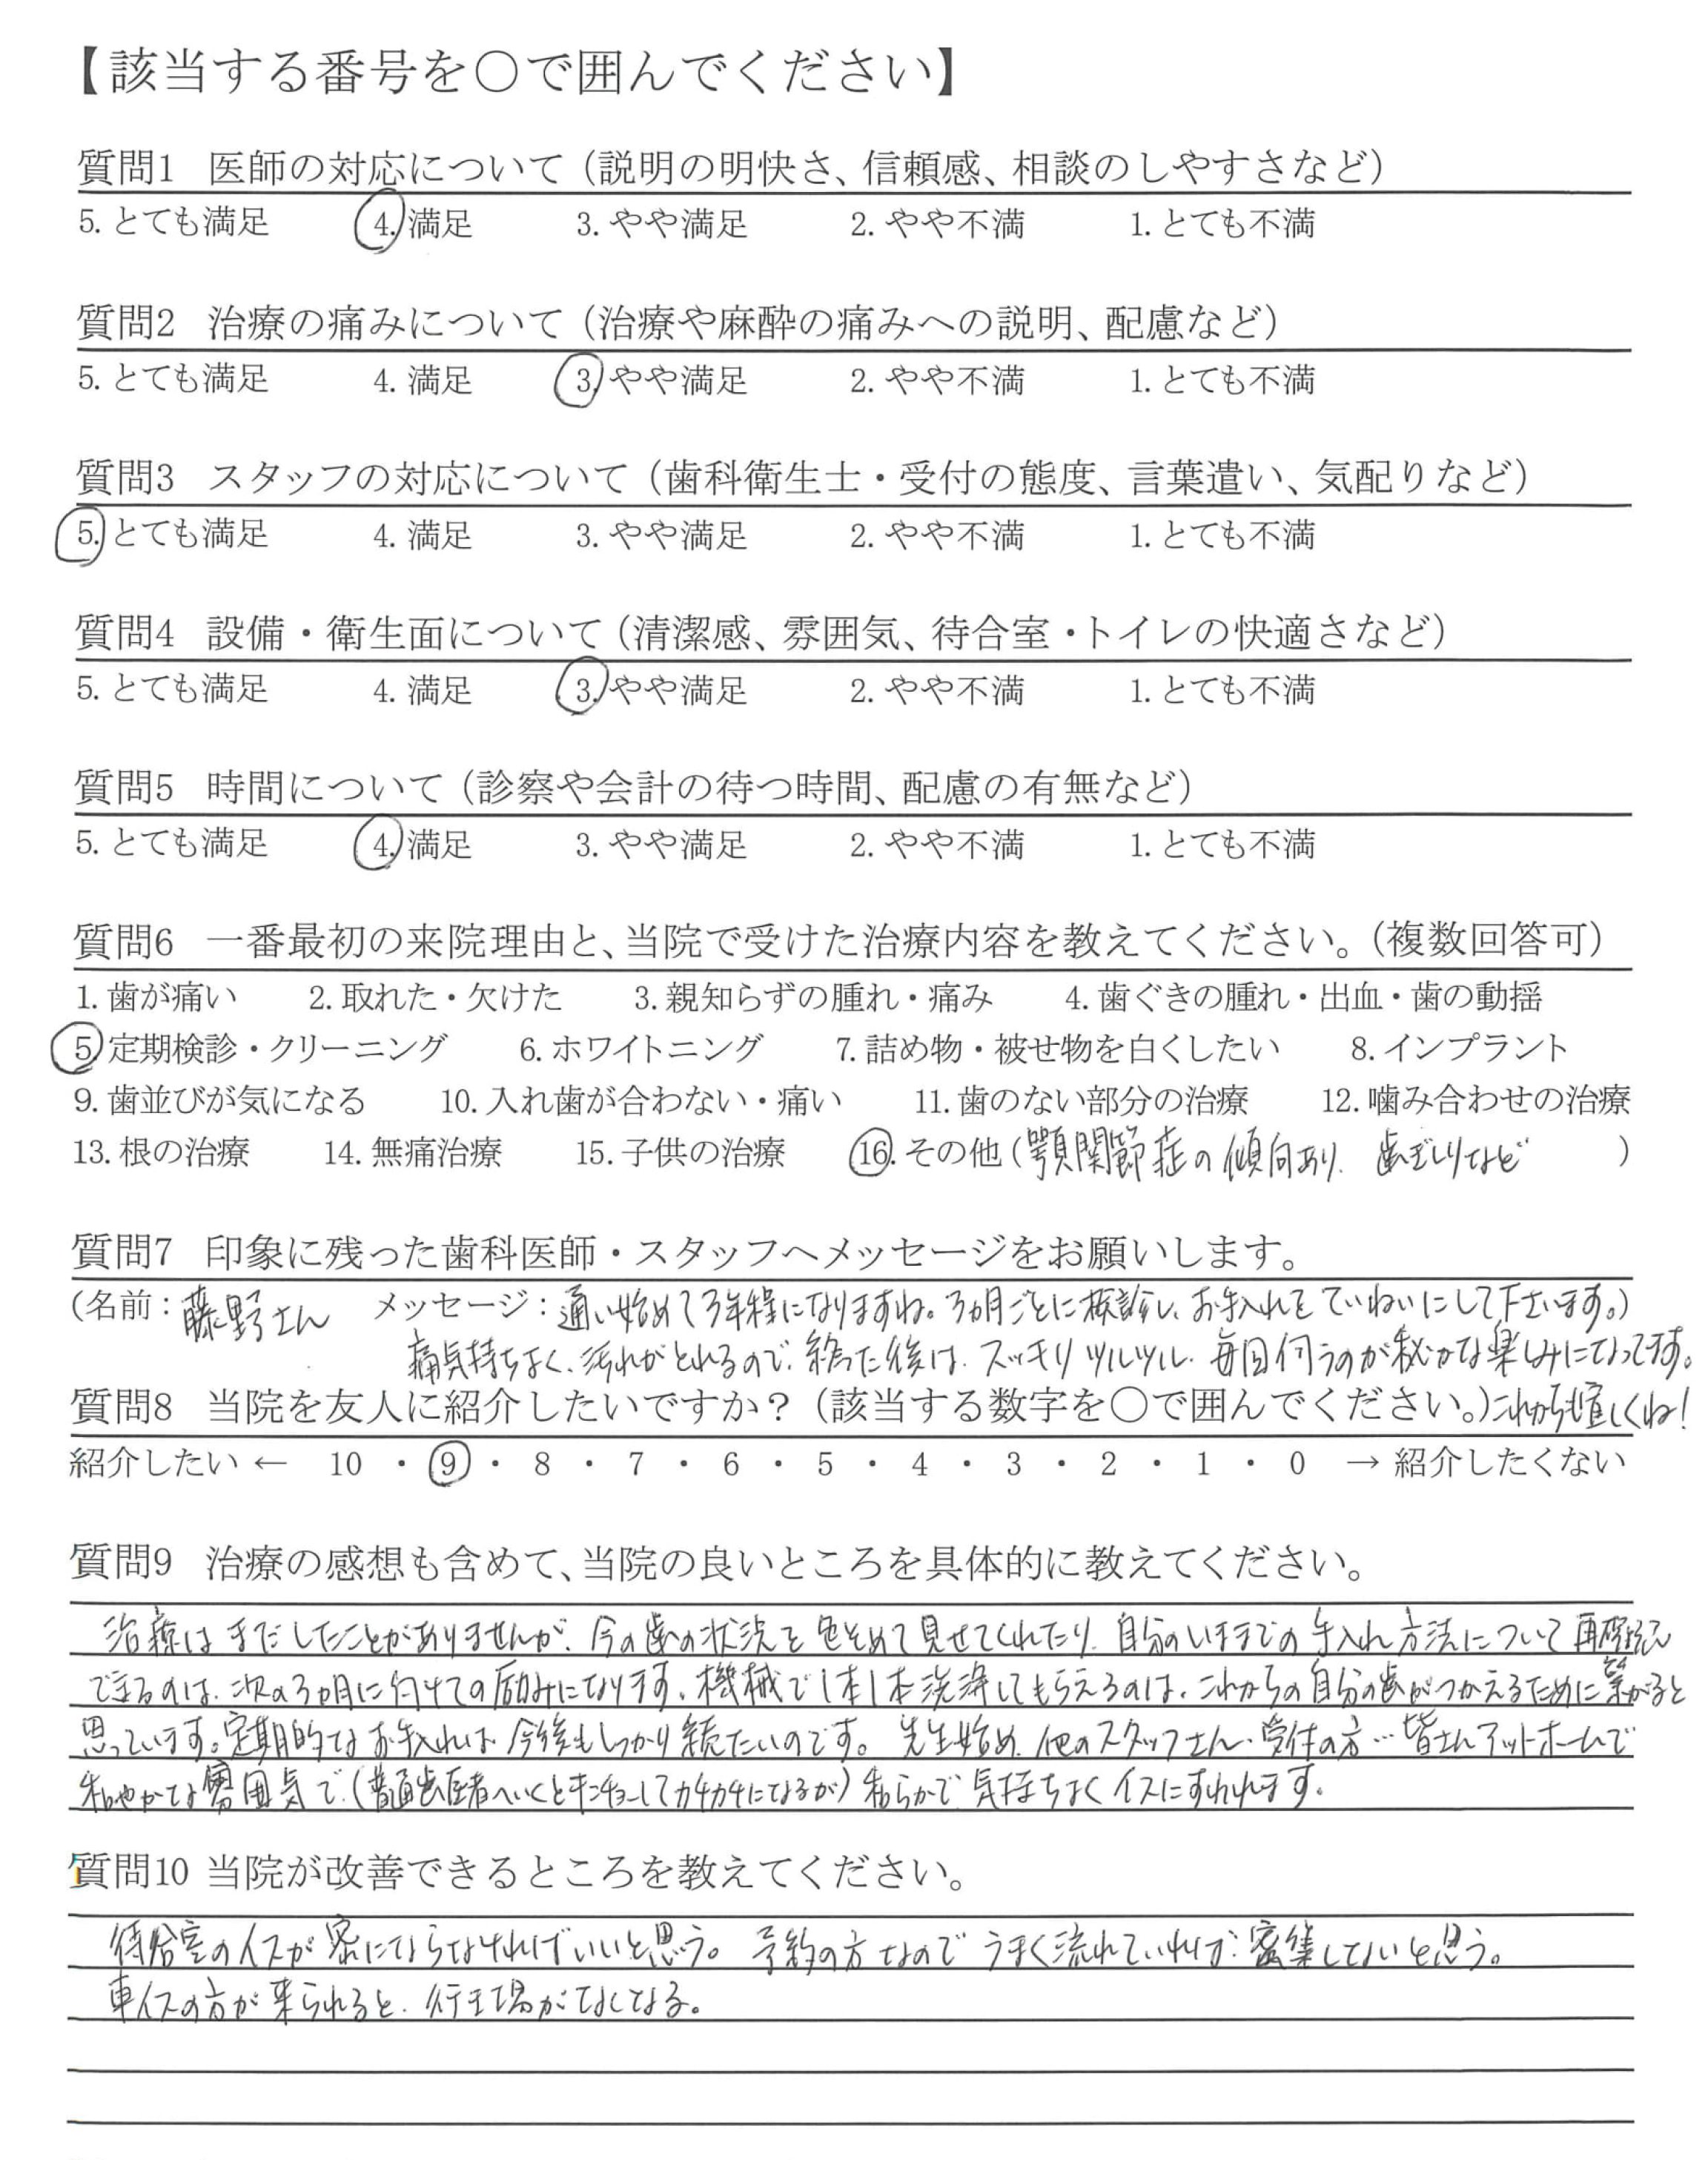 【該当する番号を○で囲んでください】
質問1 医師の対応について（説明の明快さ、信頼感、相談のしやすさなど）
5. とても満足 4. 満足 3. やや満足 2. やや不満 1. とても不満
質問2 治療の痛みについて（治療や麻酔の痛みへの説明、配慮など）
5. とても満足 4. 満足 3. やや満足 2. やや不満 1. とても不満
質問3 スタッフの対応について（歯科衛生士・受付の態度、言葉遣い、気配りなど）
5. とても満足 4. 満足 3. やや満足 2. やや不満 1. とても不満
質問4 設備・衛生面について（清潔感、雰囲気、待合室・トイレの快適さなど）
5. とても満足 4. 満足 3. やや満足 2. やや不満 1. とても不満
質問5 時間について（診察や会計の待つ時間、配慮の有無など）
5. とても満足 4. 満足 3. やや満足 2. やや不満 1. とても不満
質問6 一番最初の来院理由と、当院で受けた治療内容を教えてください。（複数回答可）
1. 歯が痛い 2. 取れた・欠けた 3. 親知らずの腫れ・痛み 4. 歯ぐきの腫れ・出血・歯の動揺
5. 定期検診・クリーニング 6. ホワイトニング 7. 詰め物・被せ物を白くしたい 8. インプラント
9. 歯並びが気になる 10. 入れ歯が合わない・痛い 11. 歯のない部分の治療 12. 噛み合わせの治療
13. 根の治療 14. 無痛治療 15. 子供の治療 16. その他（顎関節症の傾向あり、歯ぎしりなど ）
質問7 印象に残った歯科医師・スタッフへメッセージをお願いします。
（名前：藤野さん メッセージ：通い始めて3年程になりますね。3ヵ月ごとに検診し、お手入れをていねいにして下さいます。）
痛気持ちよく、汚れがとれるので、終った後は、スッキリツルツル、毎回伺うのが秘かな楽しみになってます。
質問8 当院を友人に紹介したいですか？（該当する数字を○で囲んでください。）これからも宜しくね！
紹介したい ← 10 ・ 9 ・ 8 ・ 7 ・ 6 ・ 5 ・ 4 ・ 3 ・ 2 ・ 1 ・ 0 → 紹介したくない
質問9 治療の感想も含めて、当院の良いところを具体的に教えてください。
治療はまだしたことがありませんが、今の歯の状況を色そめて見せてくれたり、自分のいままでの手入れ方法について再確認
できるのは、次の3ヵ月に向けての励みになります。機械で1本1本洗浄してもらえるのは、これからの自分の歯がつかえるために繋がると
思っています。定期的なお手入れは今後もしっかり続たいのです。先生始め、他のスタッフさん、受付の方…皆さんアットホームで
和やかな雰囲気で、（普通歯医者へいくとキンチョーしてカチカチになるが）和らかで気持ちよくイスにすわれます。
質問10 当院が改善できるところを教えてください。
待合室のイスが密にならなければいいと思う。予約の方なのでうまく流れていれば密集しないと思う。
車イスの方が来られると、行き場がなくなる。